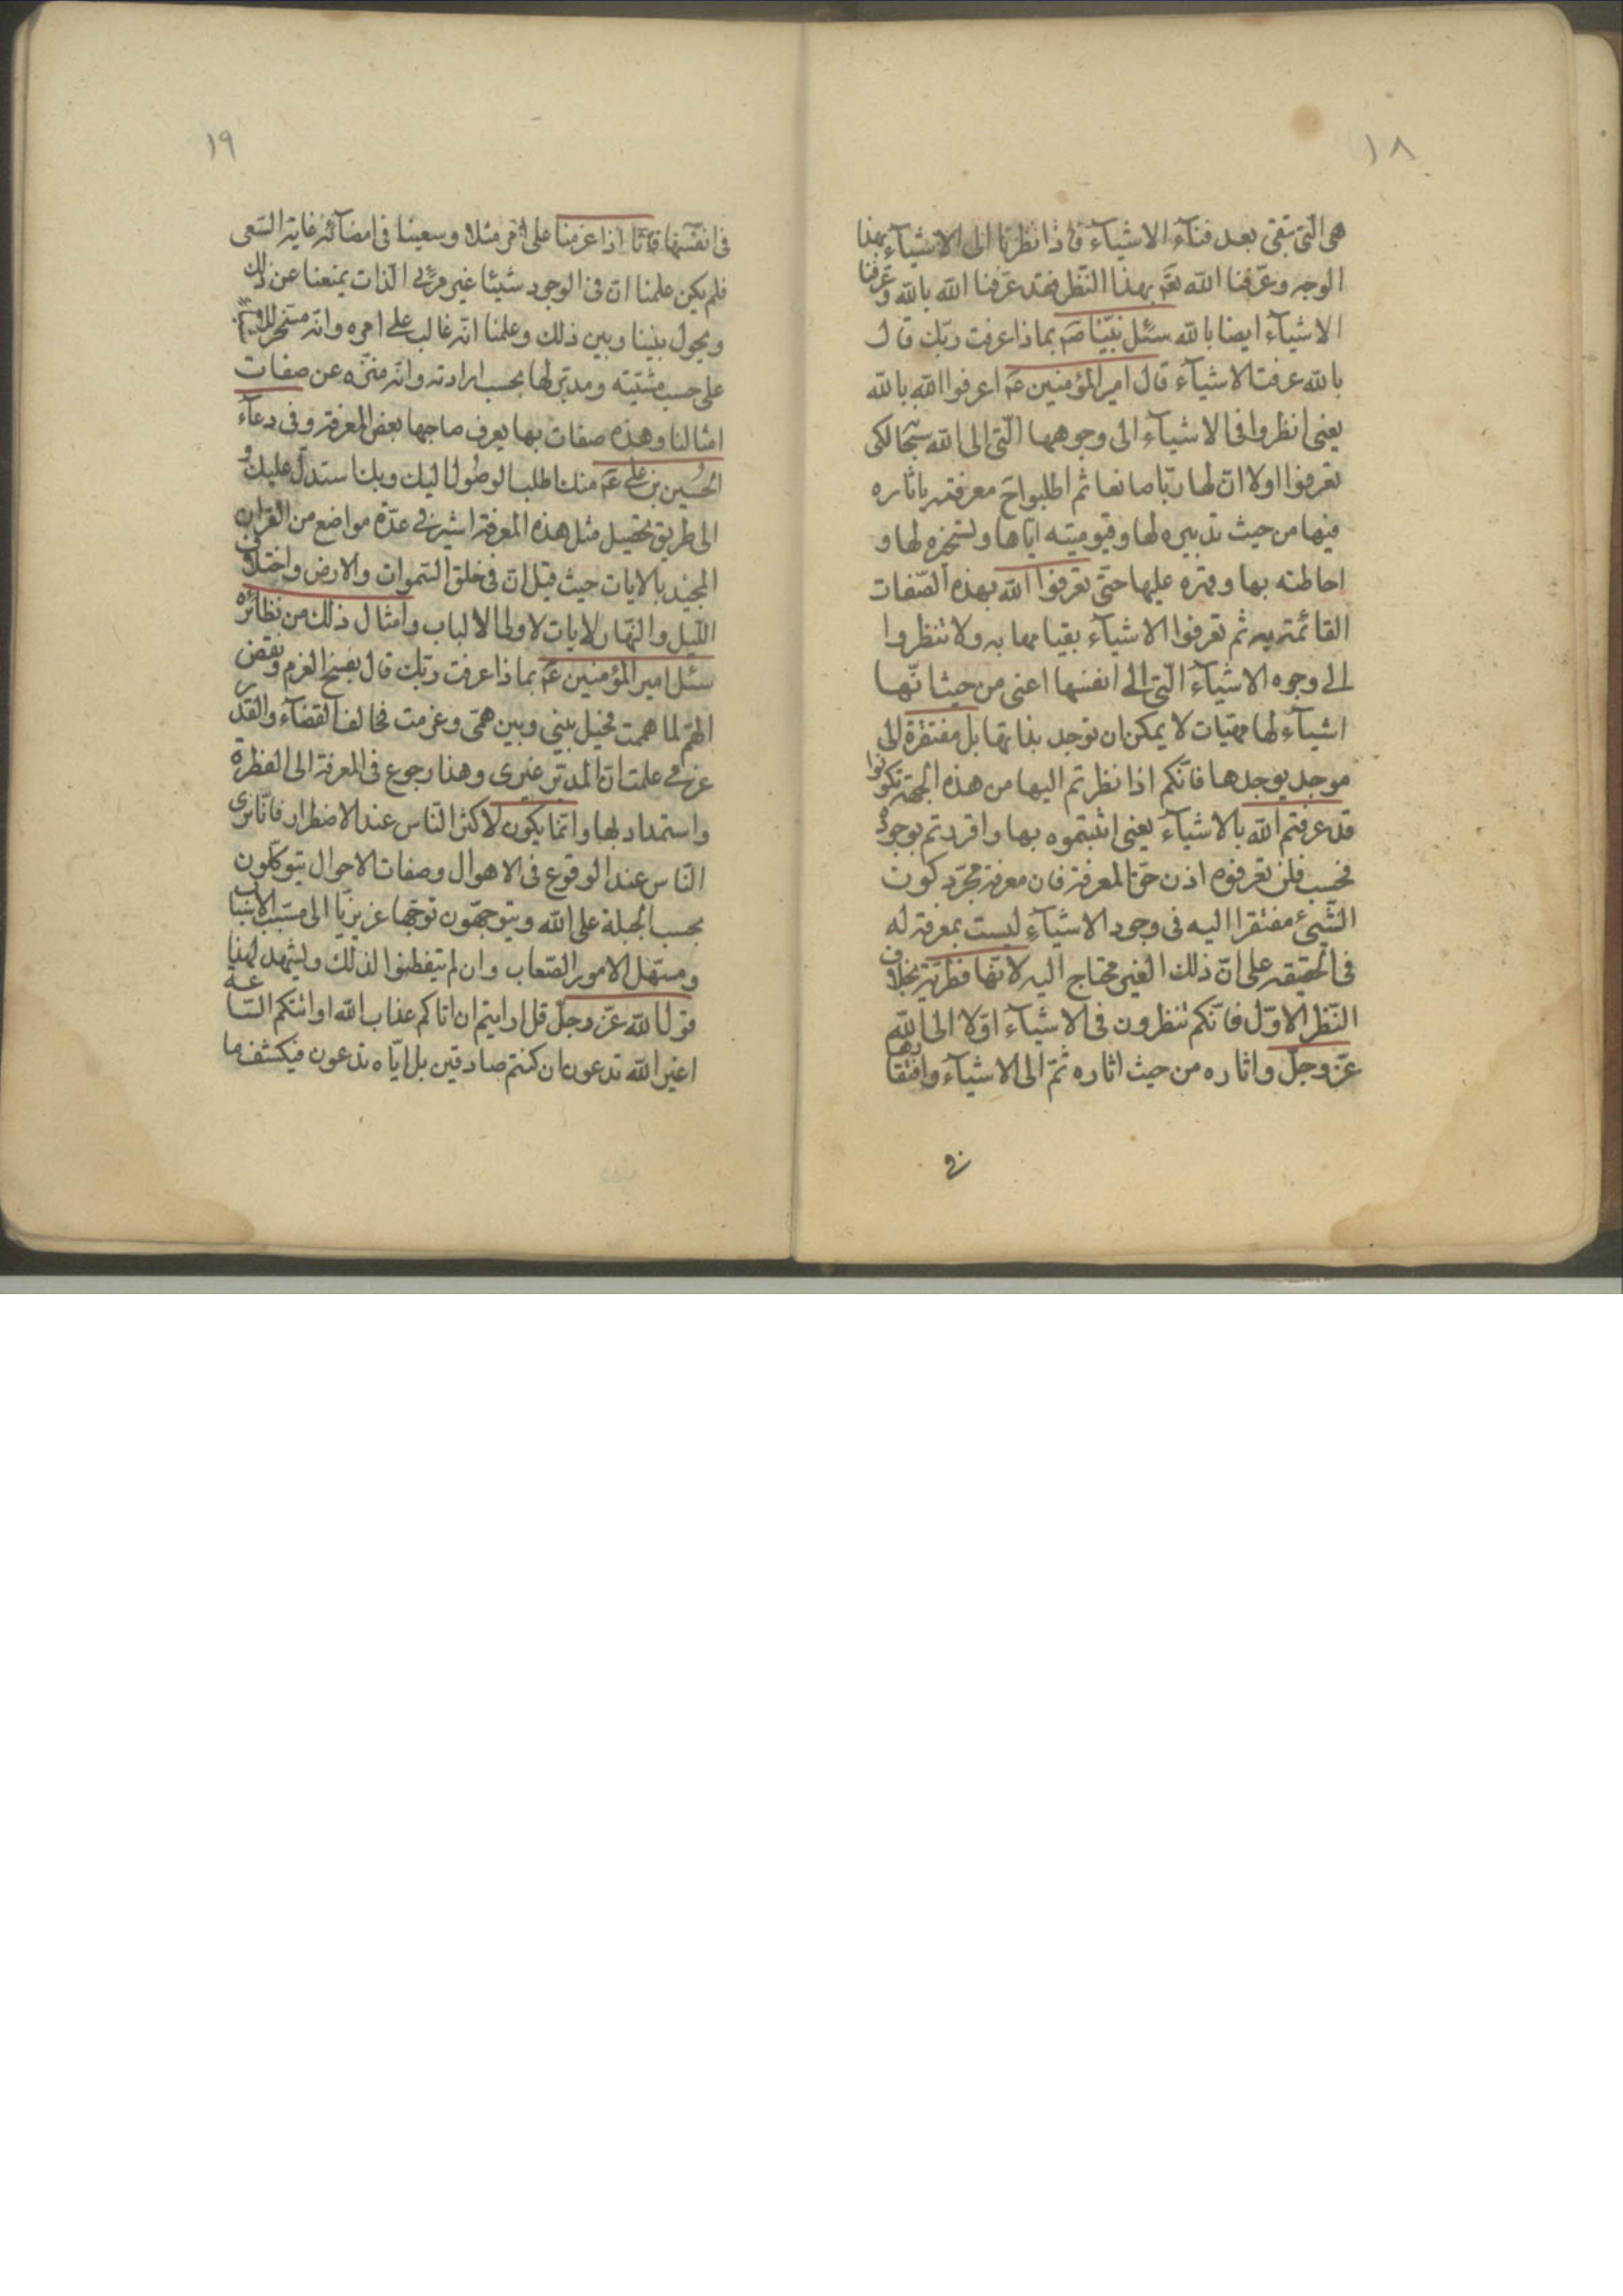 ١٨
هی الّتی تبقی بعد فنآء الاشیآء فاذا نظرنا الی الاشیآء بهذا
الوجه وعرّفنا الله تعٓ بهذا النّظر فقد عرّفنا الله بالله وعرفنا
الاشیآء ایضا بالله سئل نبیّنا صٓ بماذا عرفت ربّك قال
بالله عرفت الاشیآء قال امیر المؤمنین عٓ اعرفوا الله بالله
یعنی انظروا فی الاشیآء الی وجوهها الّتی الی الله سبحٰا لكی
تعرفوا اولا انّ لها ربّا صانعا ثم اطلبوا حقّ معرفته باثاره
فیها من حیث تدبیره لها وقیومیته ایّاها وتسخیره لها و
احاطته بها وقهره علیها حتّی تعرفوا الله بهذه الصّفات
القائمة به ثم تعرفوا الاشیآء بقیامها به ولا تنظروا
الی وجوه الاشیآء الّتی الی انفسها اعنی من حیث انّها
اشیآء لها مهیّات لا یمكن ان توجد بذاتها بل مفتقرة الی
موجد یوجدها فانّكم اذا نظرتم الیها من هذه الجهة تكونوا
قد عرفتم الله بالاشیآء یعنی اثبتموه بها واقررتم بوجوده
فحسب فلن تعرفوه اذن حقّ المعرفة فان معرفة مجرّد كون
الشّیء مفتقرا الیه فی وجود الاشیآءِ لیست بمعرفة له
فی الحقیقه علی انّ ذلك الغیر محتاج الیه لانّها فطریّة بخلاف
النّظر الاوّل فانّكم تنظرون فی الاشیآء اوّلا الی الله
عزّ وجلّ واثاره من حیث اثاره ثمّ الی الاشیآء وافتقارها
فی
١٩
فی انفسها فانّا اذا عزمنا علی امر مثلا وسعینا فی امضآئه غایة السّعی
فلم یكن علمنا ان فی الوجود شیئا غیر مرئی الذات یمنعنا عن ذلك
ویحول بیننا وبین ذلك وعلمنا انّه غالب علی امره وانّه مسخّر للاشیاء
علی حسب مشیّته ومدبّر لها بحسب ارادته وانّه منزّه عن صفات
امثالنا وهذه صفات بها یعرف صاحبها بعض المعرفة وفی دعآء
الحُسین بن علی عٓ منك اطلب الوصُول الیك وبك استدلّ علیك و
الی طریق تحصیل مثل هذه المعرفة اشیر فی عدّة مواضع من القرآن
المجید بالایات حیث قیل انّ فی خلق السّموات والارض واختلاف
اللّیل والنّهار لایات لاولی الالباب وامثال ذلك من نظائره
سئل امیر المؤمنین عٓ بماذا عرفت ربّك قال بفسخ العزم ونقض
الهمّ لما هممت فحیل بینی وبین همّی وعزمت فخالف القضآء والقدر
عزمی علمت انّ المدبّر غیری وهذا رجوع فی المعرفة الی الفطرة
واستمداد لها وانّما یكون لاكثر النّاس عند الاضطرار فانّا نری
النّاس عند الوقوع فی الاهوال وصفات الاحوال یتوكّلون
بحسب الجبلة علی الله ویتوجهّون توجّها عزیزیّا الی مسبّب الاسباب
ومسهّل الامور الصّعاب وان لم یتفطنوا لذلك ولیشهد لهذا
قول الله عزّ وجلّ قل ارایتم ان اتاكم عذاب الله او اتتكم السّاعة
اغیر الله تدعون ان كنتم صادقین بل ایّاه تدعون فیكشف ما